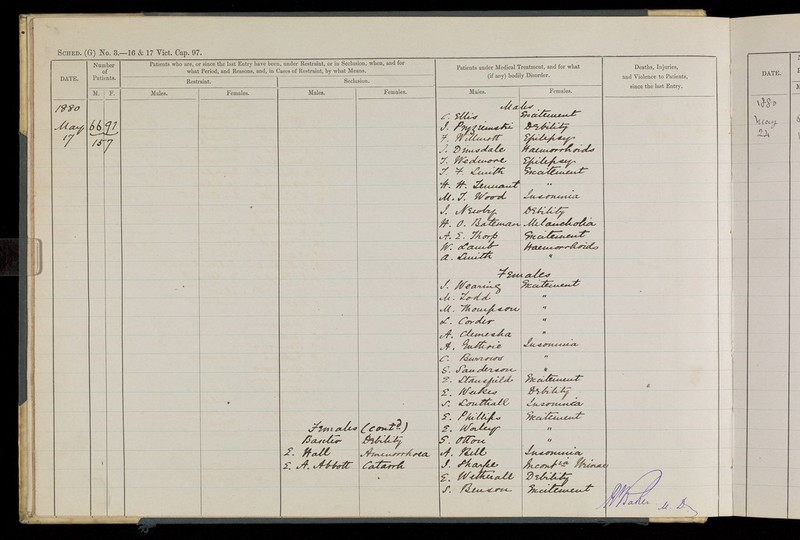 SCHED. (G) No. 3.—16 & 17 Vict. Cap. 97.
DATE.
Number of Patients.
M. F.
Patients who are, or since the last Entry have been, under Restraint, or in Seclusion, when, and for
what Period, and Reasons, and, in Cases of Restraint, by what Means.
Restraint.
Seclusion.
Males.
Females.
Males.
Females.
Patients under Medical Treatment, and for what
(if any) bodily Disorder.
Males.
Females.
Deaths, Injuries,
and Violence to Patients,
since the last Entry.
1880
May 66 91
17 157
Males
C. Ellis Excitement
Debility
F. Wilmott Epilepsy
J. Dinsdale Haemorrhoids
T. Wedmore Epilepsy
J. F. Smith Excitement
H. H. Tennant "
M. J. Wood Insomnia
J. Newby Debility
H. O. Bateman Melancholia
A. E. Thorp Excitement
W. Lamb Haemorrhoids
A. Smith "
Females
S. Wearing Excitement
M. Todd "
M. Thompson "
L. Corder "
A. Clemesha "
A. Guthrie Insomnia
C. Burrows "
E. Sanderson "
E. Stansfield Excitement
E. Weekes Debility
S. Southall Insomnia
E. Phillips Excitement
E. Waley "
S. Otton "
A. Rell Insomnia
J. Sharpe Incont^ce Urinae
E. Wetherall Debility
S. Benson Excitement
Females (cont^d)
Debility
E. Hall Amenorrhoea
E. A. Abbott Catarrh
R Baker M.D.
DATE.
1880
May
24